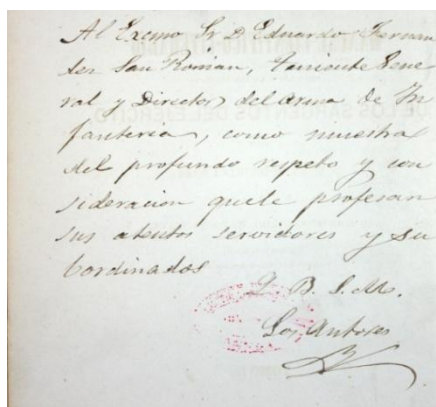 Al Excmo Sr D. Eduardo Fernan
dez San Roman, Teniente Gene
ral y Director del arma de In
fanteria, como muestra
del profundo respeto y con
sideracion que le profesan
sus atentos servidores y su
bordinados
Q. B. S. M.
Los Autores